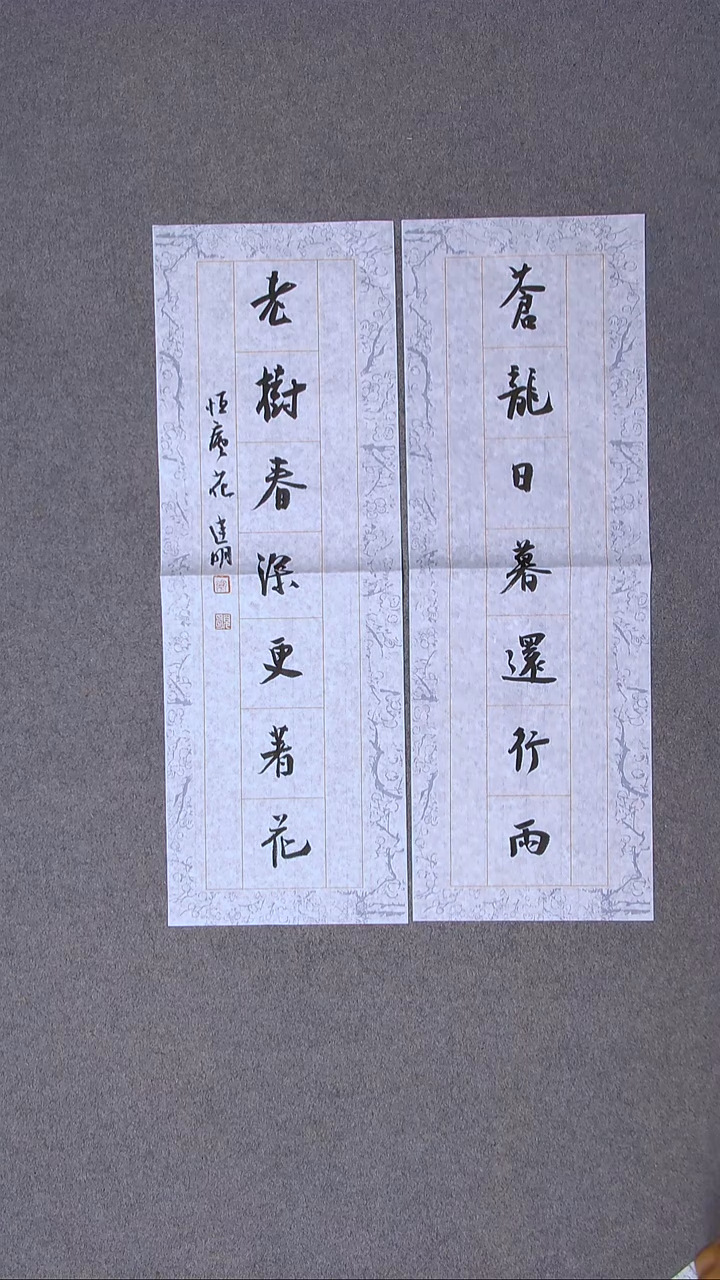 蒼龍日暮還行雨
老樹春深更著花
恒庵花達明